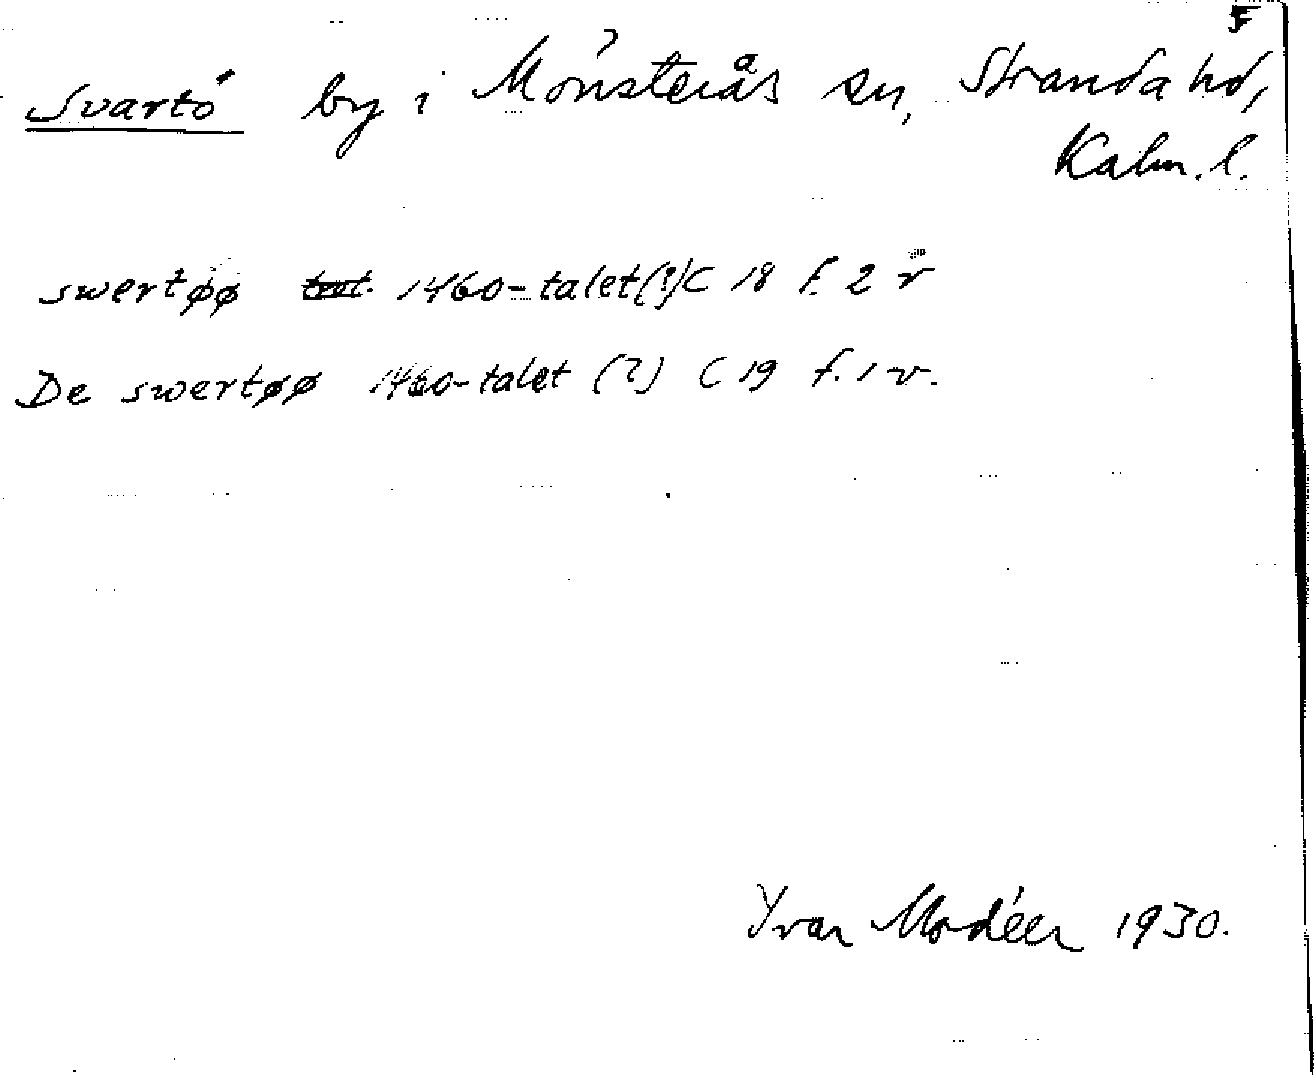 Svartö by i Mönsterås sn, Stranda hd,
Kalm. l.
swertøø 1460-talet(?) C 18 f. 2 r
De swertøø 1460-talet (?) C 19 f. 1 v.
Yvar Modéer 1930.